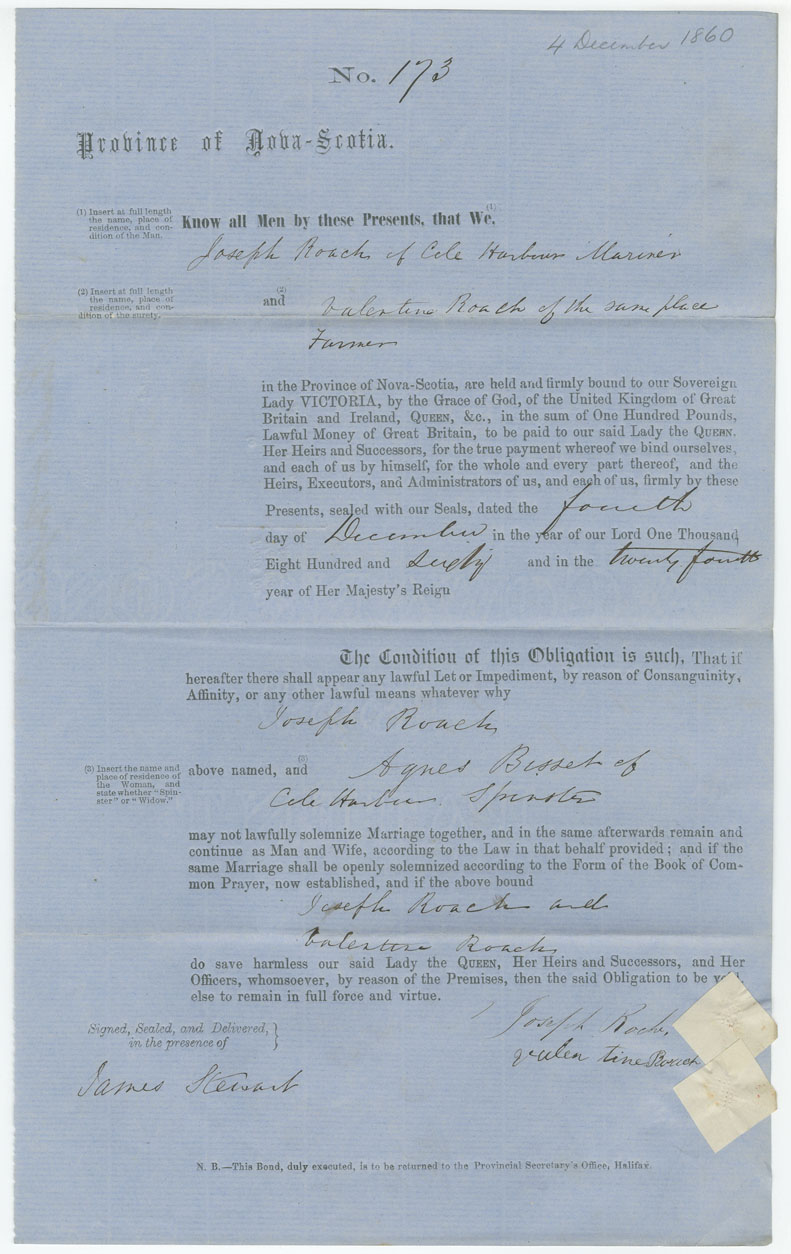 4 December 1860
No. 173
Province of Nova-Scotia.
(1) Insert at full length
the name, place of
residence, and con-
dition of the Man.
Know all Men by these Presents, that We, (1)
Joseph Roach of Cole Harbour Mariner
(2) Insert at full length
the name, place of
residence, and con-
dition of the surety.
and (2) Valentine Roach of the same place
Farmer
in the Province of Nova-Scotia, are held and firmly bound to our Sovereign
Lady VICTORIA, by the Grace of God, of the United Kingdom of Great
Britain and Ireland, QUEEN, &c., in the sum of One Hundred Pounds,
Lawful Money of Great Britain, to be paid to our said Lady the QUEEN.
Her Heirs and Successors, for the true payment whereof we bind ourselves,
and each of us by himself, for the whole and every part thereof, and the
Heirs, Executors, and Administrators of us, and each of us, firmly by these
Presents, sealed with our Seals, dated the fourth
day of December in the year of our Lord One Thousand
Eight Hundred and sixty and in the twenty fourth
year of Her Majesty's Reign
The Condition of this Obligation is such, That if
hereafter there shall appear any lawful Let or Impediment, by reason of Consanguinity,
Affinity, or any other lawful means whatever why
Joseph Roach
(3) Insert the name and
place of residence of
the Woman, and
state whether "Spin-
ster" or "Widow."
above named, and (3) Agnes Bisset of
Cole Harbour Spinster
may not lawfully solemnize Marriage together, and in the same afterwards remain and
continue as Man and Wife, according to the Law in that behalf provided; and if the
same Marriage shall be openly solemnized according to the Form of the Book of Com-
mon Prayer, now established, and if the above bound
Joseph Roach and
Valentine Roach
do save harmless our said Lady the QUEEN, Her Heirs and Successors, and Her
Officers, whomsoever, by reason of the Premises, then the said Obligation to be void,
else to remain in full force and virtue.
Signed, Sealed, and Delivered,
in the presence of
Joseph Roch
valen tine Roach
James Stewart
N. B.—This Bond, duly executed, is to be returned to the Provincial Secretary's Office, Halifax.